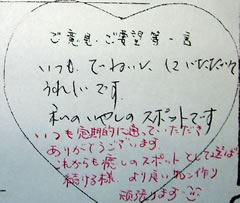 ご意見・ご要望等一言
いつも、ていねいに していただいて
うれしいです。
私のいやしの スポットです
いつも定期的に通っていただき
ありがとうございます。
これからも癒しのスポットとして選ばれ
続ける様、より良いサロン作り
頑張ります